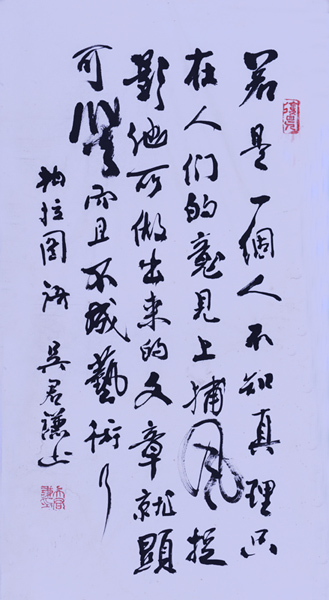 若是一個人不知真理只
在人们的意見上捕风捉
影他所做出来的文章就顯
可笑而且不成藝術了
柏拉图语 吴君